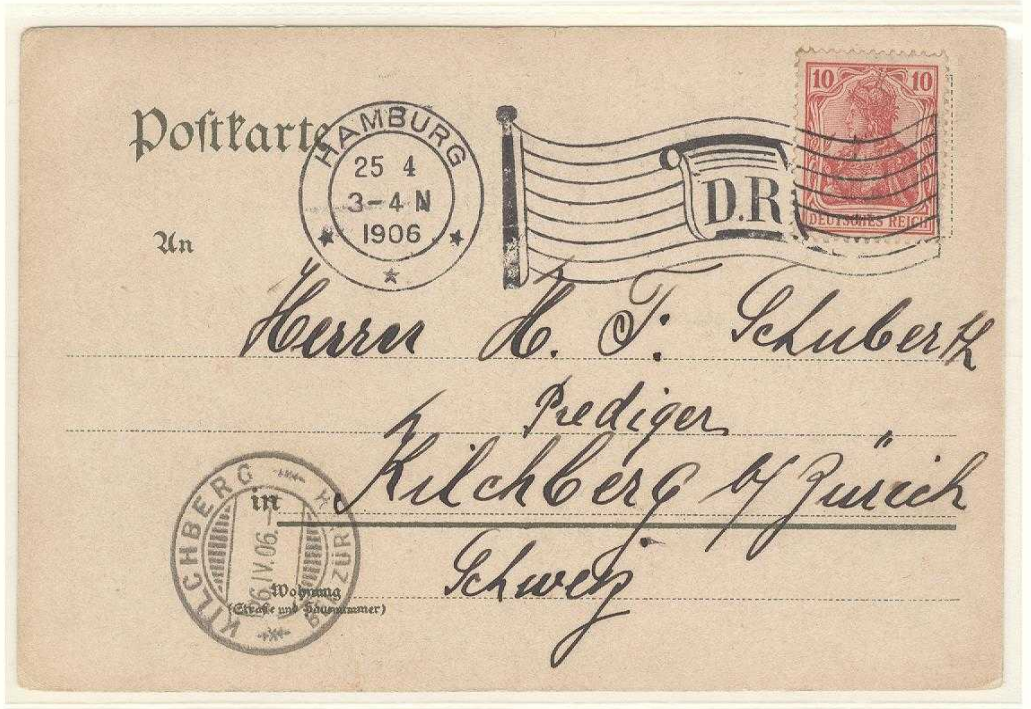 Postkarte
HAMBURG
25 4
3-4 N
1906
D.R
10 10
DEUTSCHES REICH
An
Herrn H. F. Schuberth
Prediger
in Kilchberg b/ Zürich
Schweiz
KILCHBERG
6.IV.06.
ZÜRICH
Wohnung
(Straße und Hausnummer)